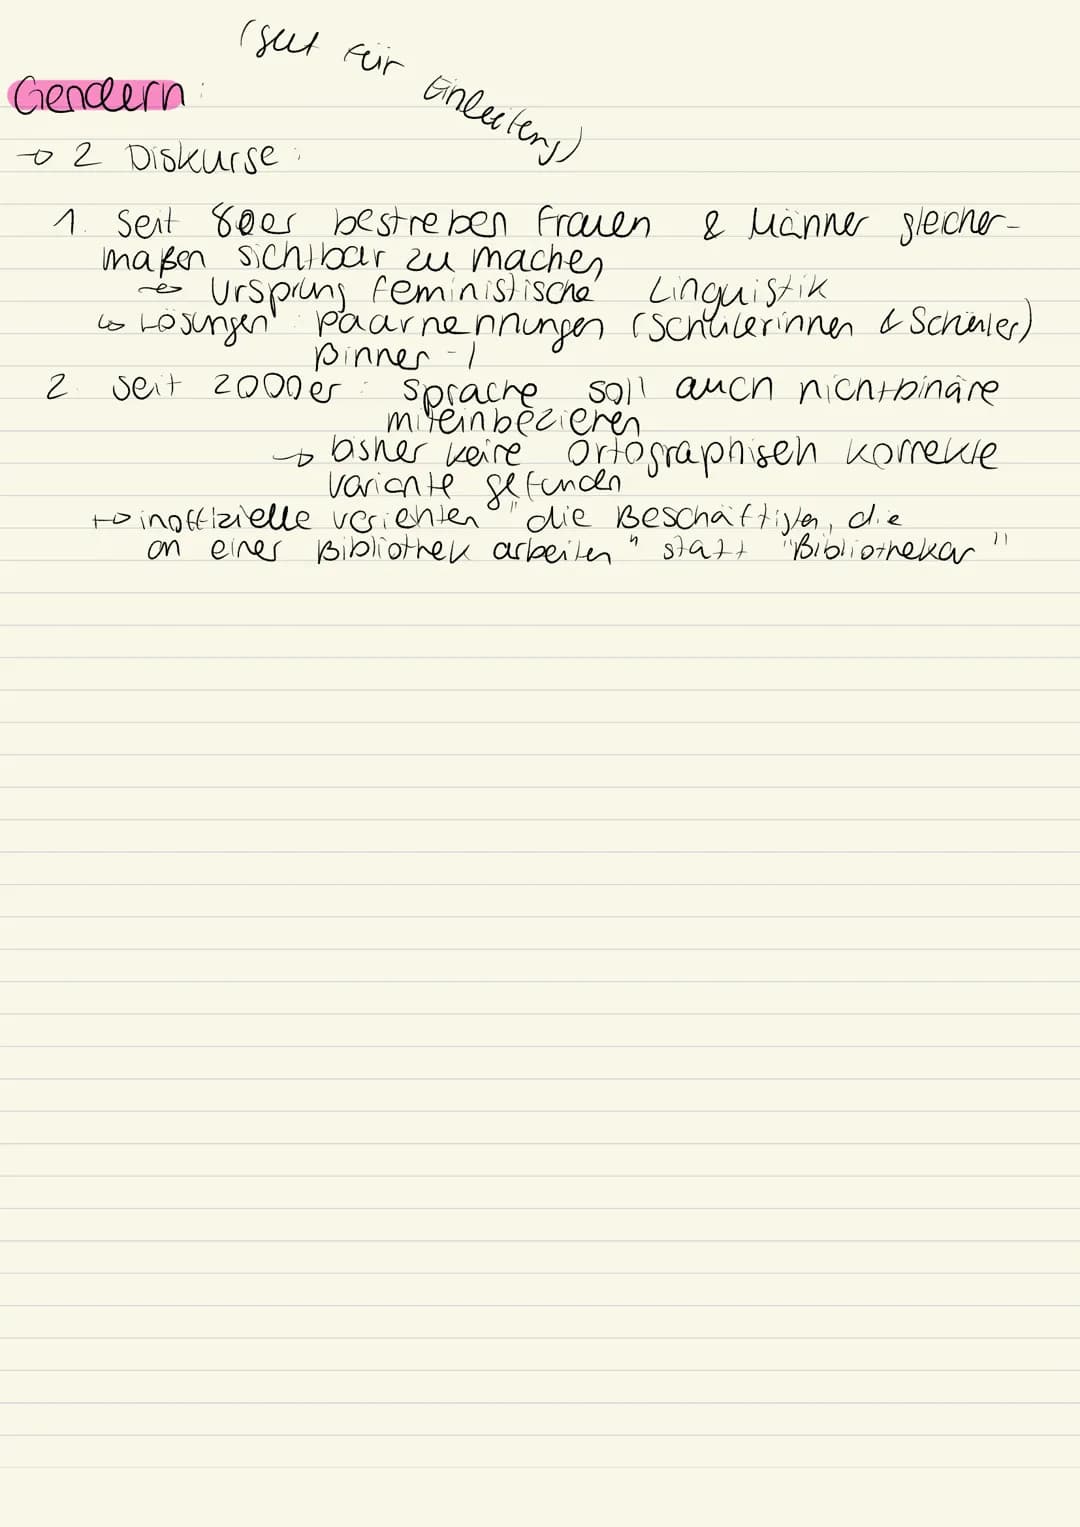 (gut für Einleitung)
Gendern:
→ 2 Diskurse:
1. Seit 80er bestreben Frauen & Männer gleicher-
maßen sichtbar zu machen
→ Ursprung feministische Linguistik
↳ Lösungen: Paarnennungen (Schülerinnen & Schüler)
Binnen-I
2. Seit 2000er: Sprache soll auch nichtbinäre
miteinbezieren
→ bisher keine ortographisch korrekte
variante gefunden
→ inoffizielle varienten "die Beschäftigten, die
an einer Bibliothek arbeiten" statt "Bibliothekar"